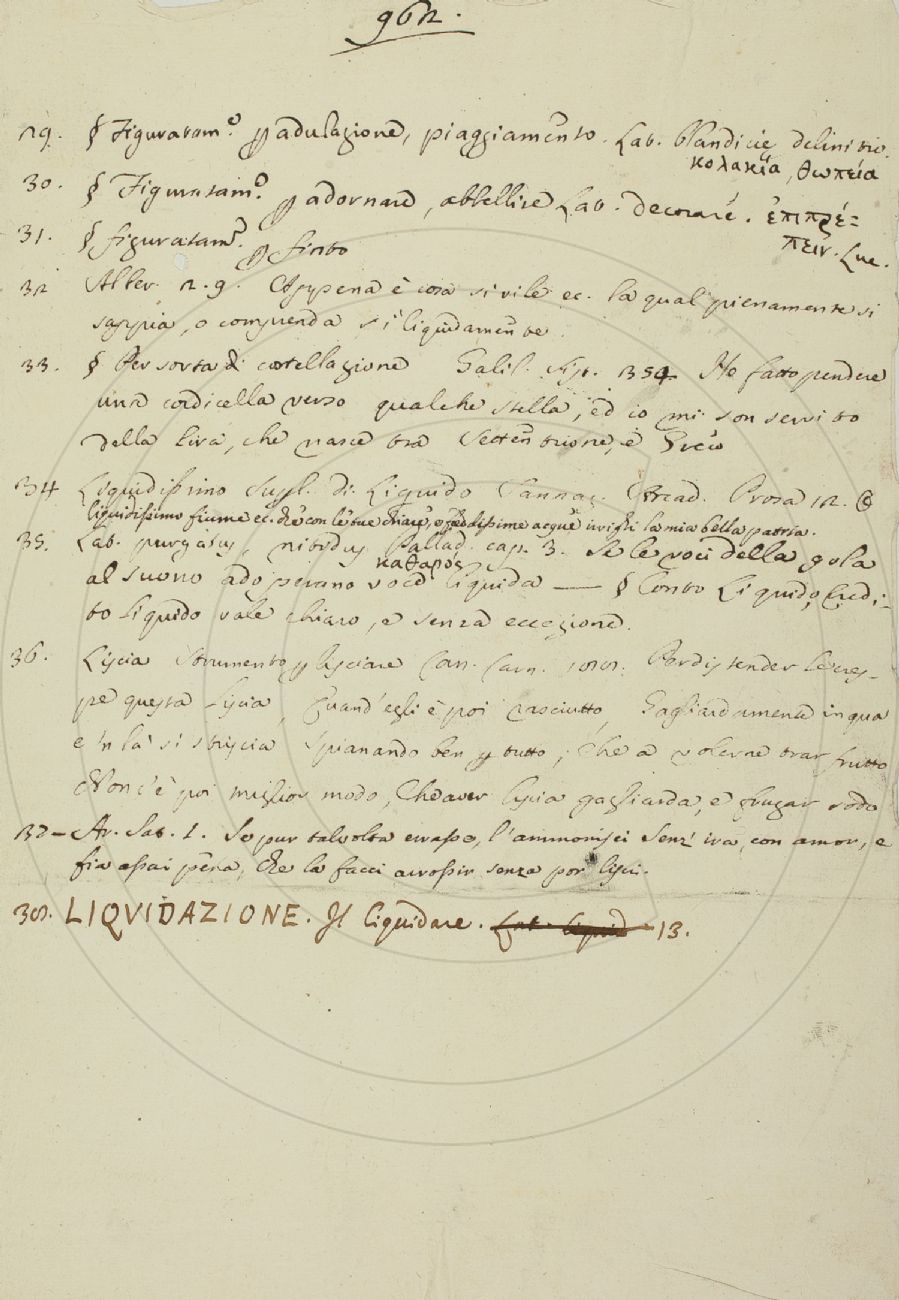 962.
29. § Figuratam.o p adulazione, piaggiamento. Lat. blanditię delinitio.
κολακεία, θωπεία
30. § Figuratam.o p adornare, abbellire Lat. decorare. ἐπιπρέ=
πειν. Luc.
31. § figuratam.e p finto
32 Alber. 2. 9. Appena è cosa si vile ec. la qual pienamente si
sappia, o comprenda sì liquidamente.
33. § Per sorta di costellazione Galil. Sist. 354 Ho fatto pendere
una cordicella verso qualche stella, ed io mi son servito
della lira, che nasce tra Settentrione, e Greco
34 Liquidissimo Supl. di Liquido Sannaz. Arcad. Prosa 12. O
liquidissimo fiume ec. che con le tue chiare, e freddissime acque irrighi la mia bella patria.
35. Lat. purgatus, nitidus Pallad. cap. 3. Se le voci della gola
καθαρός
al suono adoperano voce liquida — § Conto Liquido, Credi-
to Liquido vale chiaro, e senza eccezione.
36. Liscia Strumento p lisciare Can. Carn. Per distender le cres-
pe questa Liscia, Quand' egli è poi rasciutto, Gagliardamente in qua
e 'n là si striscia Spianando ben p tutto; Che a volerne trar frutto
Non c'è poi miglior modo, Che aver liscia gagliarda, e frugar sodo
37 – Ar. Sat. 1. Se pur talvolta errasse, l'ammonisci Senz' ira, con amor, e
fia assai pena, Che la facci arrossir senza por lisci.
38. LIQVIDAZIONE. Il liquidare. Lat. liquid 13.